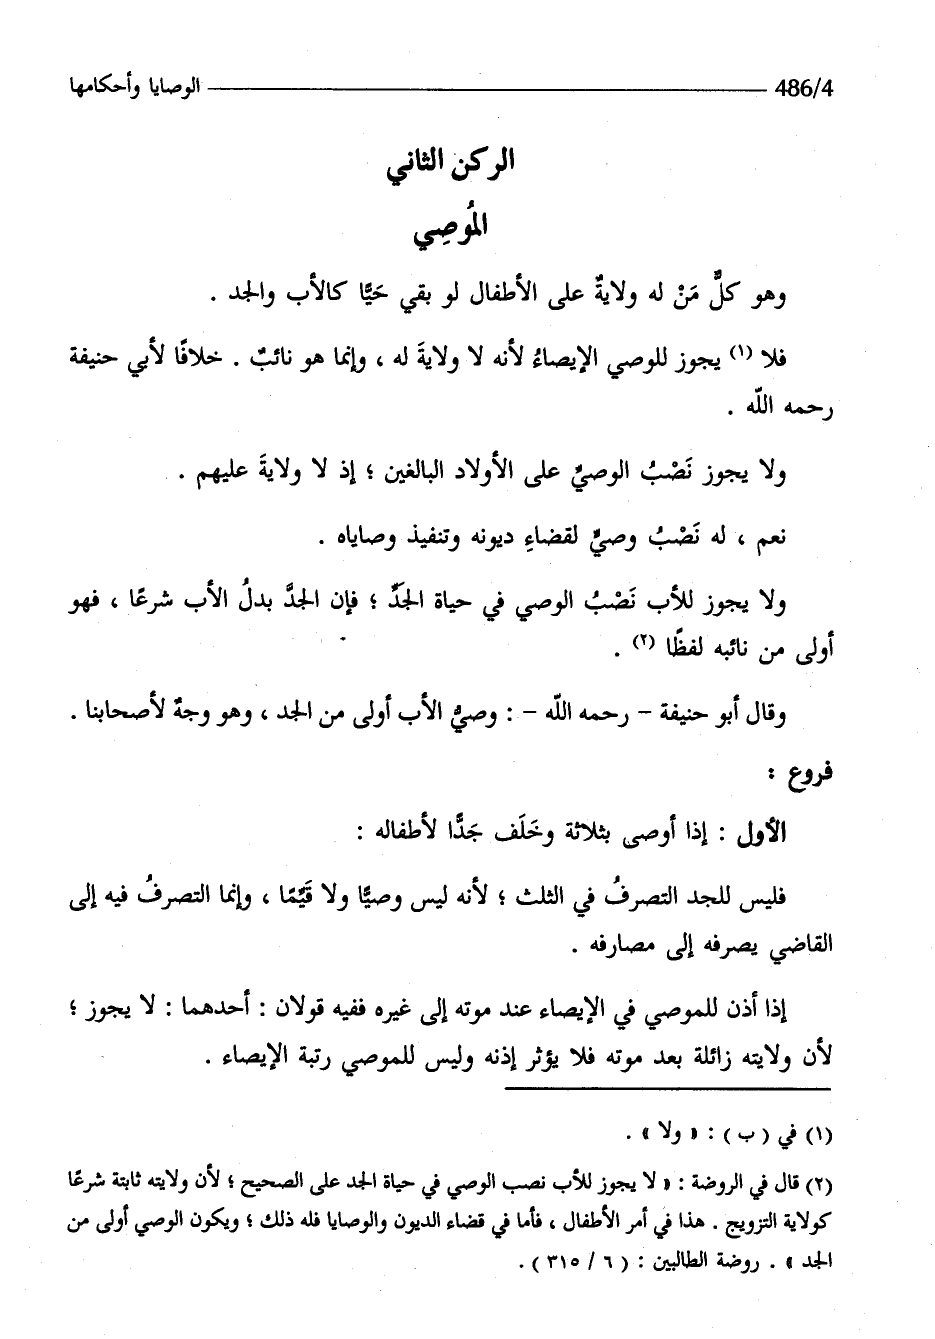 486/4 الوصايا وأحكامها
الركن الثاني
المُوصِي
وهو كلُّ مَنْ له ولايةٌ على الأطفال لو بقي حَيًّا كالأب والجد .
فلا (١) يجوز للوصي الإيصاءُ لأنه لا ولايةَ له ، وإنما هو نائبٌ . خلافًا لأبي حنيفة
رحمه اللّه .
ولا يجوز نَصْبُ الوصيِّ على الأولاد البالغين ؛ إذ لا ولايةَ عليهم .
نعم ، له نَصْبُ وصيٍّ لقضاءِ ديونه وتنفيذ وصاياه .
ولا يجوز للأب نَصْبُ الوصي في حياة الجَدِّ ؛ فإن الجدَّ بدلُ الأب شرعًا ، فهو
أولى من نائبه لفظًا (٢) .
وقال أبو حنيفة – رحمه اللّه – : وصيُّ الأب أولى من الجد ، وهو وجهٌ لأصحابنا .
فروع :
الأول : إذا أوصى بثلاثة وخَلَف جَدًّا لأطفاله :
فليس للجد التصرفُ في الثلث ؛ لأنه ليس وصيًّا ولا قَيِّمًا ، وإنما التصرفُ فيه إلى
القاضي يصرفه إلى مصارفه .
إذا أذن للموصي في الإيصاء عند موته إلى غيره ففيه قولان : أحدهما : لا يجوز ؛
لأن ولايته زائلة بعد موته فلا يؤثر إذنه وليس للموصي رتبة الإيصاء .
(١) في ( ب ) : « ولا » .
(٢) قال في الروضة : « لا يجوز للأب نصب الوصي في حياة الجد على الصحيح ؛ لأن ولايته ثابتة شرعًا
كولاية التزويج . هذا في أمر الأطفال ، فأما في قضاء الديون والوصايا فله ذلك ؛ ويكون الوصي أولى من
الجد » . روضة الطالبين : ( ٦ / ٣١٥ ) .